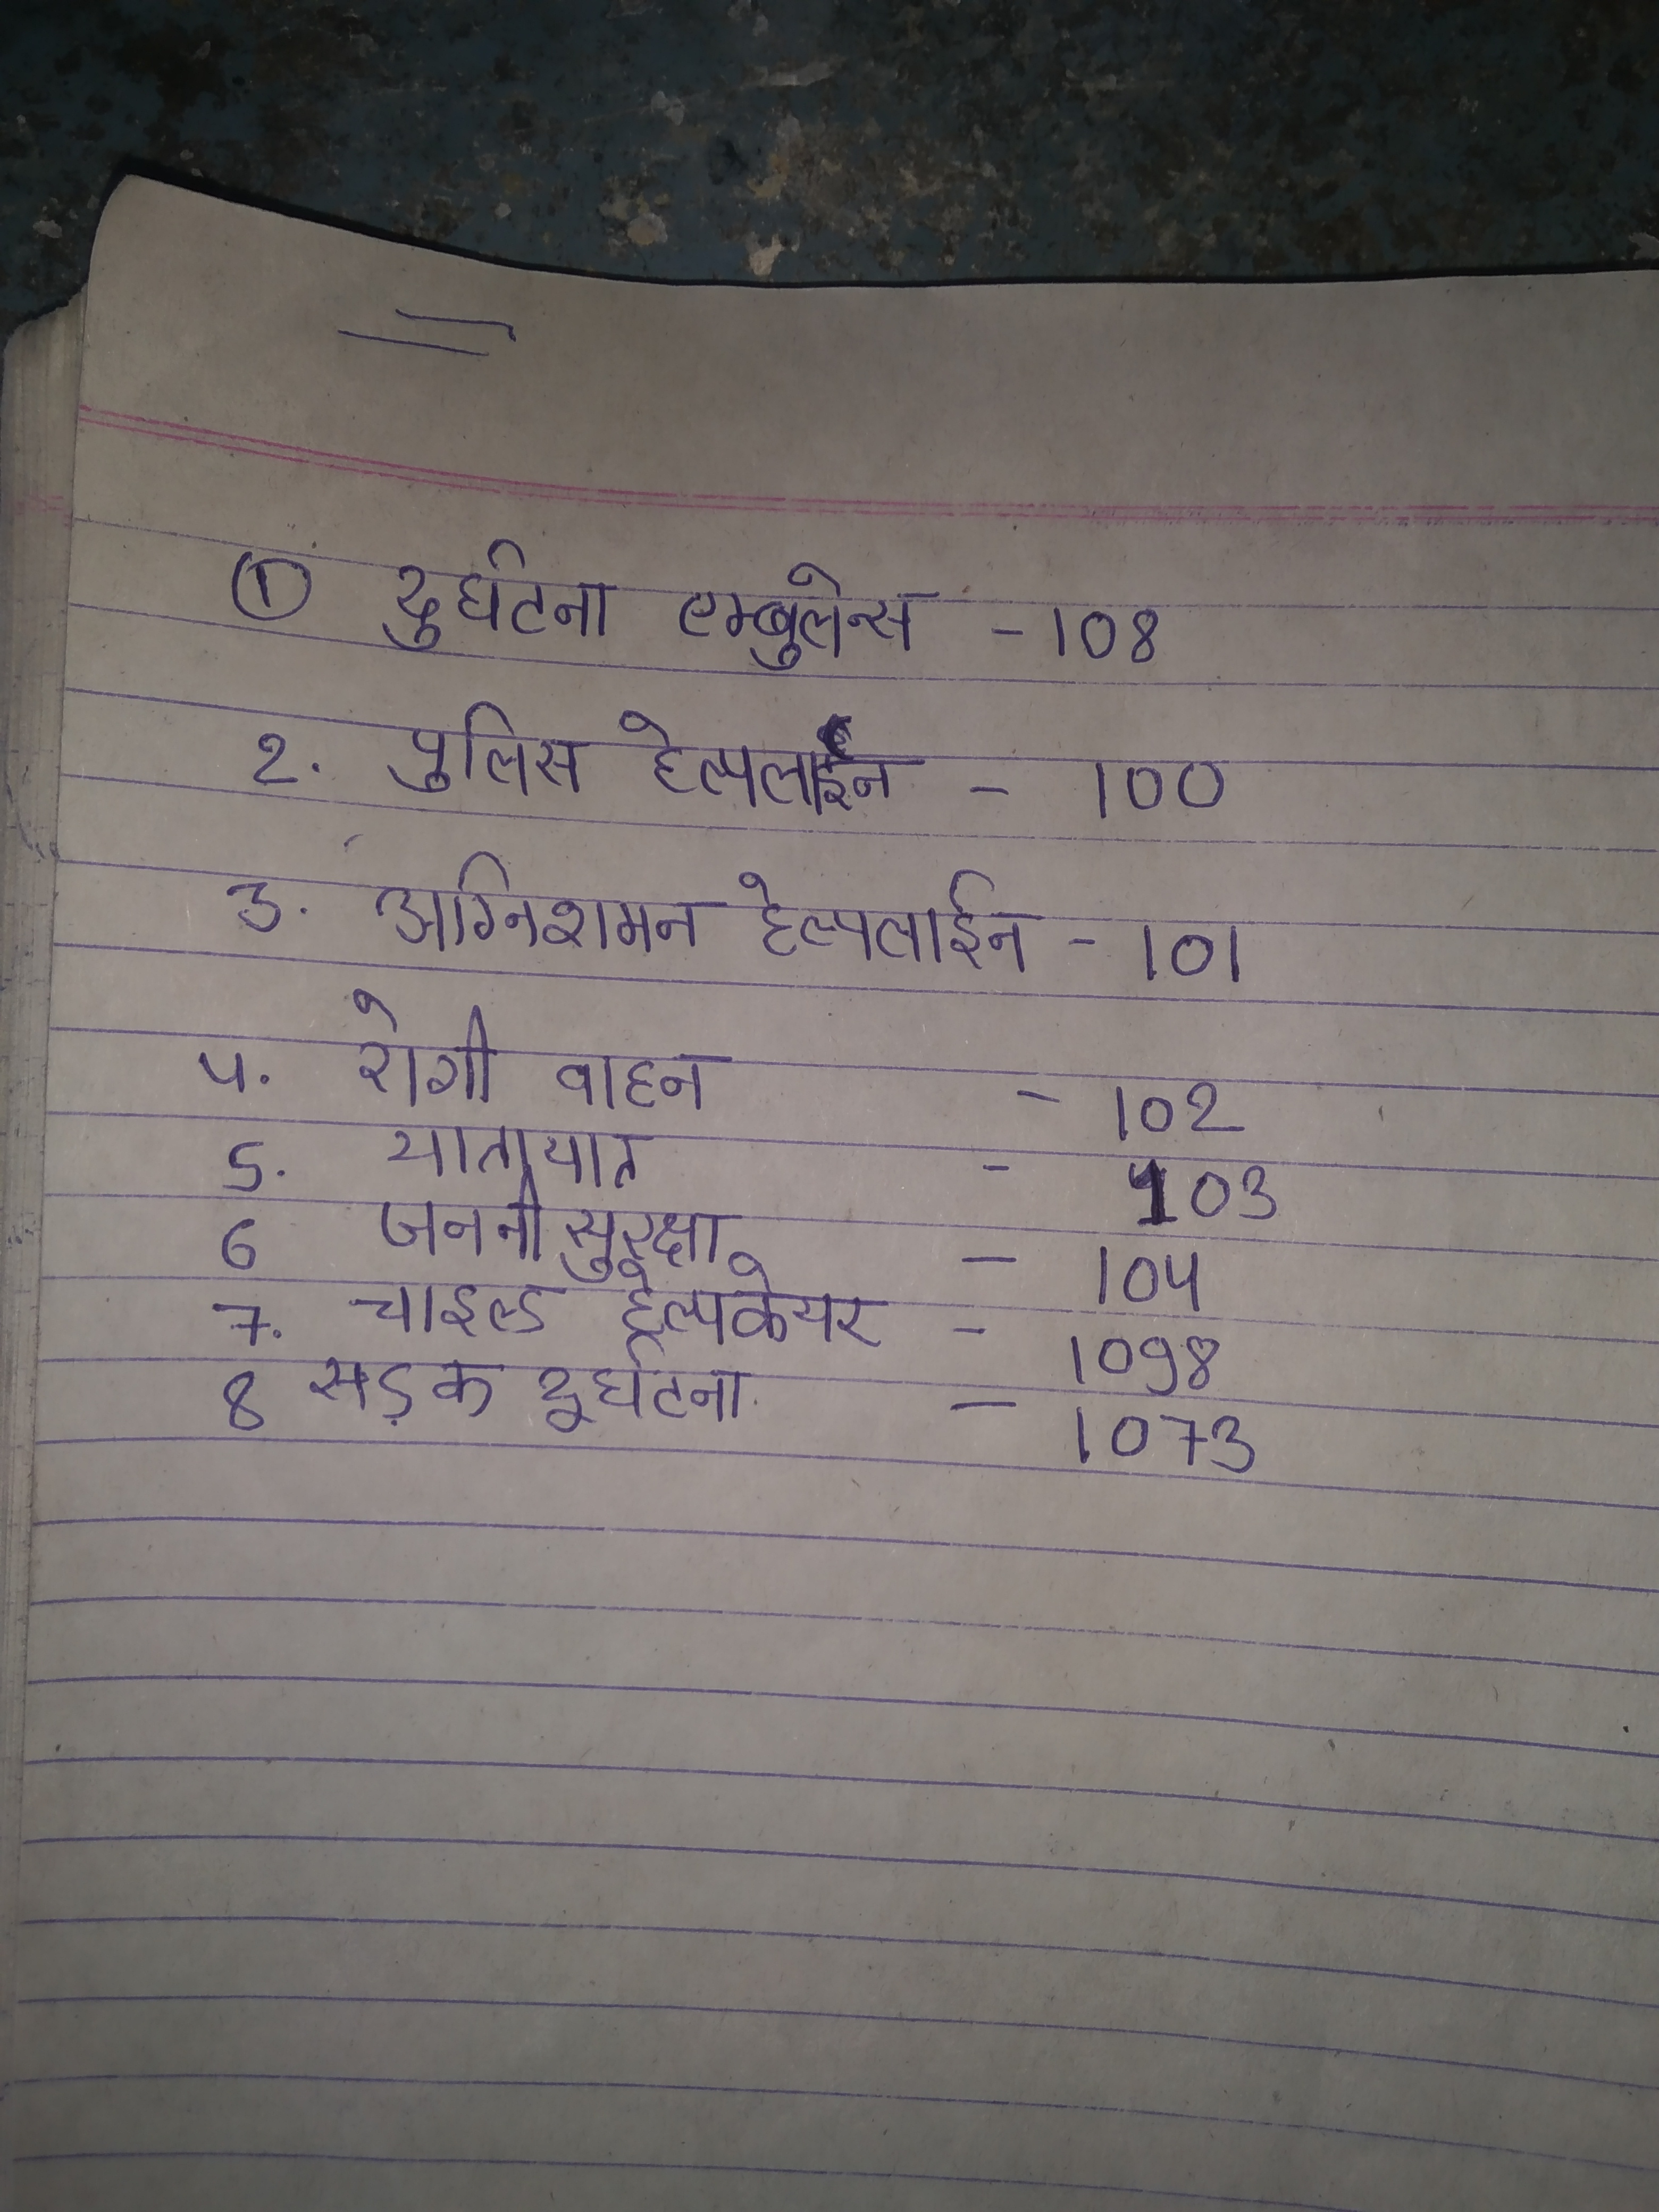 ① दुर्घटना एम्बुलेन्स - 108
2. पुलिस हेल्पलाईन - 100
3. अग्निशमन हेल्पलाईन - 101
4. रोगी वाहन - 102
5. यातायात - 103
6 जननी सुरक्षा - 104
7. चाइल्ड हेल्पकेयर - 1098
8 सड़क दूर्घटना - 1073